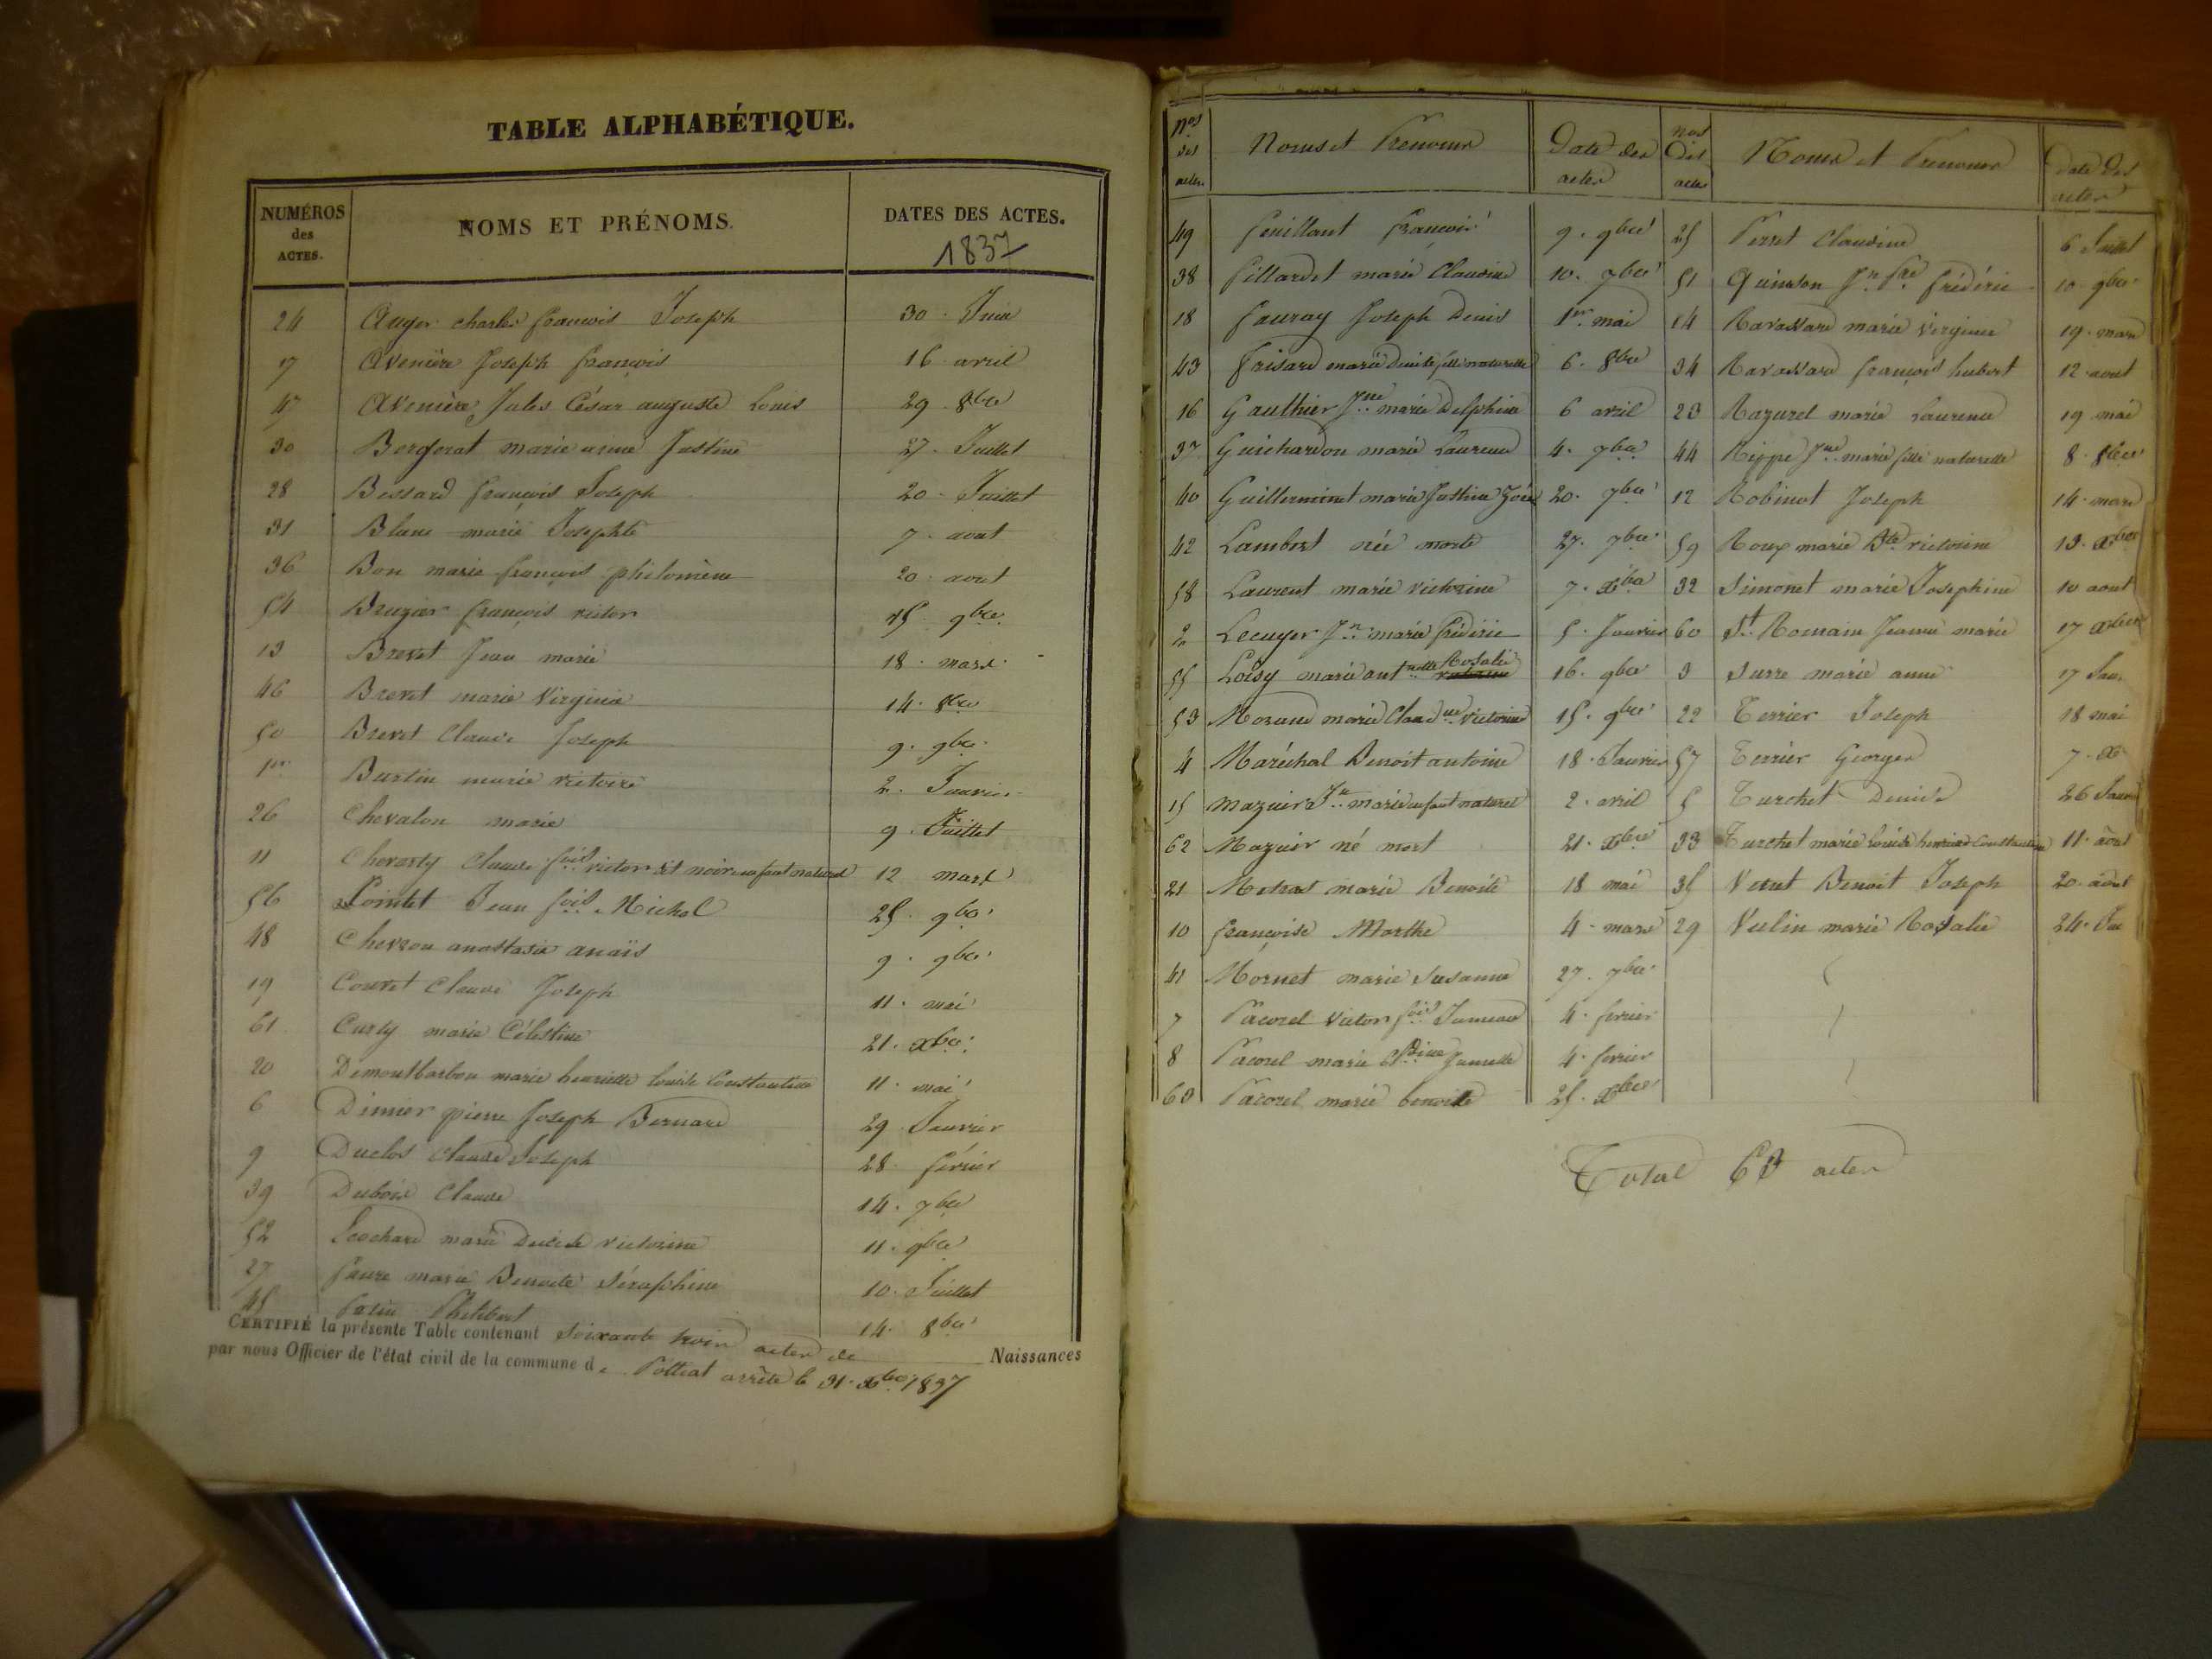 TABLE ALPHABÉTIQUE.
NUMÉROS des ACTES. NOMS ET PRÉNOMS. DATES DES ACTES.
1837
24 Auger charles françois Joseph 30. Juin
17 Avenière Joseph françois 16 avril
47 Avenière Jules César auguste Louis 29. 8bre
30 Bergerat marie Justine 27. Juillet
28 Bessard françois Joseph 20. Juillet
31 Blanc marie Josephte 7. aout
36 Bon marie françois philomène 20. aout
54 Brugier françois victor 15 9bre
13 Brevet Jean marie 18. mars
46 Brevet marie Virginie 14. 8bre
50 Brevet Claude Joseph 9. 9bre
1er Burtin marie victoire 2. Janvier
26 Chevalon marie 9. Juillet
11 Chevarty Claude fois victor dit noir enfant naturel 12 mars
56 Pointet Jean fois Michel 25. 9bre
48 Chevron anastasie anaïs 9. 9bre
19 Couvet Claude Joseph 11. mai
61 Curty marie Célestine 21. xbre
20 Demontbarbon marie henriette louise Constantine 11. mai
6 Dimier pierre Joseph Bernard 29 Janvier
9 Duclos Claude Joseph 28. février
39 Dubois Claude 14. 7bre
52 Ecochard marie victorine 11. 9bre
27 faure marie Benoite Séraphine 10. Juillet
45 Philibert 14. 8bre
CERTIFIÉ la présente Table contenant soixante trois actes de Naissances
par nous Officier de l'état civil de la commune de Polliat arrêté le 31. xbre 1837
Nos des actes Noms et Prenoms Date des actes
49 feuillant francois 9. 9bre
38 fillardet marie Claudine 10. 7bre
18 fauray Joseph Denis 1er mai
43 frisard marie Denise fille naturelle 6. 8bre
16 Gauthier Jne marie Delphine 6 avril
37 Guichardon marie Laurence 4. 7bre
40 Guillerminet marie Justine Zoé 20. 7bre
42 Lambert née morte 27. 7bre
58 Laurent marie victorine 7. xbre
2 Lecuyer Jn marie frédéric 5. Janvier
55 Loisy marie antnette Rosalie 16. 9bre
53 Morand marie Claudne victorine 15. 9bre
4 Maréchal Benoit antoine 18. Janvier
15 Mazuir Jn marie enfant naturel 2. avril
62 Mazuir né mort 21. xbre
21 Mestras marie Benoite 18 mai
10 françoise Marthe 4. mars
41 Mornet marie Susanne 27. 7bre
7 Pacorel victor fois Jumeau 4. fevrier
8 Pacorel marie Cldine Jumelle 4. fevrier
63 Pacorel marie benoite 25. xbre
nos des actes Noms et Prenoms Date des actes
25 Perret Claudine 6 Juillet
51 Quinson Jn fre frédéric 10. 9bre
14 Ravassard marie virginie 19. mars
34 Ravassard françois hubert 12. aout
23 Razurel marie Laurence 19 mai
44 Rippe Jne marie fille naturelle 8. 8bre
12 Robinot Joseph 14. mars
59 Roux marie Bte victorine 13. xbre
32 Simonet marie Josephine 10 aout
60 St Romain Jeanne marie 17 xbre
3 Surre marie anne 17 Jan.
22 Terrier Joseph 18 mai
57 Terrier Georges 7. x
5 Turchet Denise 26 Janv
33 Turchet marie louise henriette Constantine 11. aout
35 Venet Benoit Joseph 20. aout
29 Vulin marie Rosalie 24. Jui
Total 63 actes